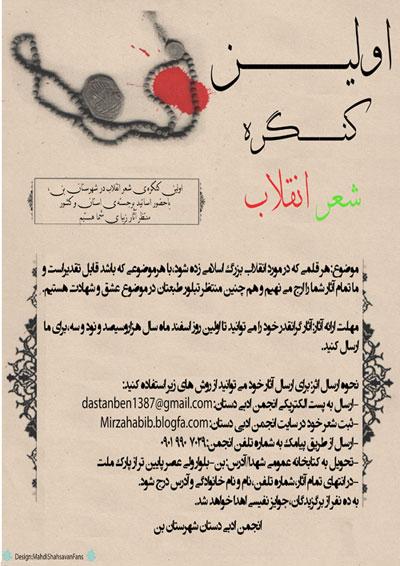 اولین
کنگره
شعر انقلاب
اولین کنگره‌ی شعر انقلاب در شهرستان بن،
باحضور اساتید برجسته‌ی استانی و کشور
منتظر آثار زیبای شما هستیم
موضوع: هر قلمی که در مورد انقلاب بزرگ اسلامی زده شود، با هر موضوعی که باشد قابل تقدیر است و
ما تمام آثار شما را ارج می نهیم و هم چنین منتظر تبلور طبعتان در موضوع عشق و شهادت هستیم.
مهلت ارائه آثار: آثار گرانقدر خود را می توانید تا اولین روز اسفند ماه سال هزاروسیصد و نود و سه، برای ما
ارسال کنید.
نحوه ارسال اثر: برای ارسال آثار خود می توانید از روش های زیر استفاده کنید:
-ارسال به پست الکتریکی انجمن ادبی دستان: dastanben1387@gmail.com
-ثبت شعر خود در سایت انجمن ادبی دستان: Mirzahabib.blogfa.com
-ارسال از طریق پیامک به شماره تلفن انجمن: ۰۹۰۱ ۹۹۰ ۷۰۲۹
-تحویل به کتابخانه عمومی شهدا آدرس: بن- بلوار ولی عصر پایین تر از پارک ملت
-در انتهای تمام آثار، شماره تلفن، نام و نام خانوادگی و آدرس درج شود.
به ده نفر از برگزیدگان، جوایز نفیسی اهدا خواهد شد.
انجمن ادبی دستان شهرستان بن
Design:MahdiShahsavanFans